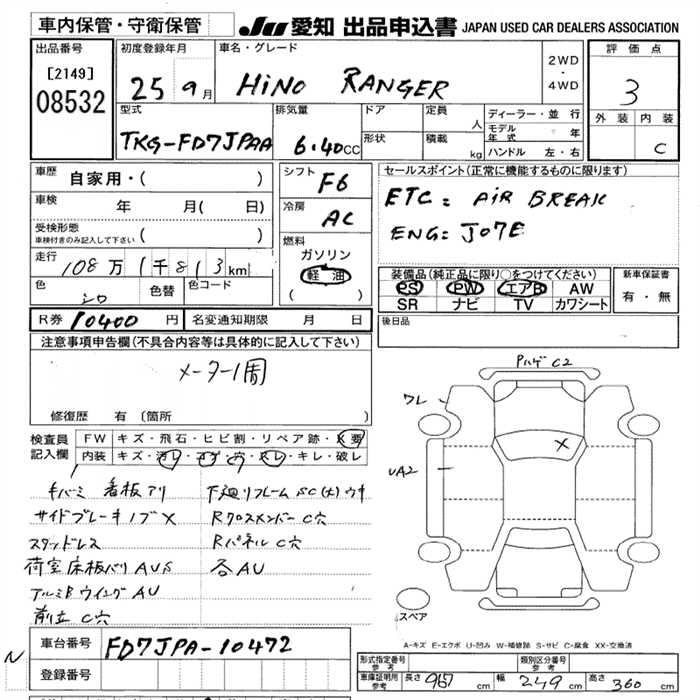 車内保管・守衛保管
JU 愛知 出品申込書 JAPAN USED CAR DEALERS ASSOCIATION
出品番号
[2149]
08532
初度登録年月
25 9月
車名・グレード
HINO RANGER
2WD
・
4WD
評価点
3
外装 内装
C
型式
TKG-FD7JPAA
排気量
6.40CC
ドア
形状
定員 人
積載 kg
ディーラー・並行
モデル年式 年
ハンドル 左・右
車歴 自家用・( )
車検 年 月( 日)
受検形態
車検付きのみ記入して下さい ( )
走行
108万1千813km
色 シロ 色替 色コード
シフト F6
冷房 AC
燃料
ガソリン
軽油
( )
セールスポイント(正常に機能するものに限ります)
ETC: AIR BREAK
ENG: J07E
装備品(純正品に限り○をつけてください)
PS PW エアB AW
SR ナビ TV カワシート
新車保証書
有・無
R券 10400円 名変通知期限 月 日
後日品
注意事項申告欄(不具合内容等は具体的に記入して下さい)
メーター1周
修復歴 有(箇所 )
検査員記入欄
FW キズ・飛石・ヒビ割・リペア跡・X要
内装 キズ・汚レ・コゲ・穴・スレ・キレ・破レ
キバミ 看板アリ
サイドブレーキノブX
スタッドレス
荷室床板バリAUS
アルミBウイングAU
前立C穴
下廻リフレームSC(大)ウキ
RクロスメンバーC穴
RパネルC穴
各AU
PハゲC2
ワレ
UA2
X
スペア
A-キズ E-エクボ U-凹み W-補修跡 S-サビ C-腐食 XX-交換済
N
車台番号 FD7JPA-10472
登録番号
形式指定番号 参考
類別区分番号 参考
車庫証明用 参考 長さ 967cm 幅 249cm 高さ 360cm